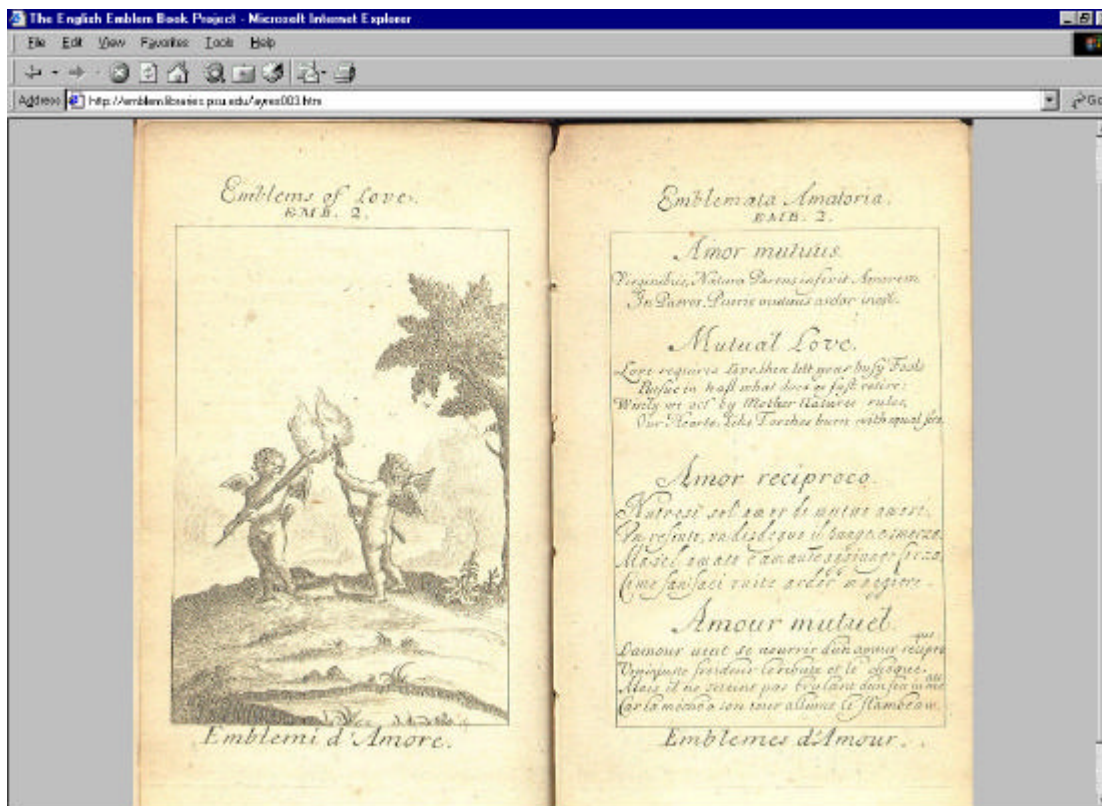 The English Emblem Book Project - Microsoft Internet Explorer
File Edit View Favorites Tools Help
Address http://emblem.libraries.psu.edu/ayres003.htm Go
Emblems of Love.
EMB. 2.
Emblemi d'Amore.
Emblemata Amatoria.
EMB. 2.
Amor mutuus.
Virginibus, Natura Parens inserit Amorem
In Pueros, Pueris mutuus ardor inest.
Mutual Love.
Love requires Love, then lett your busy
Pursue in hast what does as fast retire:
Wisely we act by Mother Natures rules,
Our Hearts, like Torches burn with equal fire.
Amor reciproco.
amor di mutuo amore.
Amour mutuel
L'amour veut se nourrir d'un amour recipro
que
et le
Mais il ne s'eteint pas brulant d'un feu
son tour allume le flambeau.
Emblemes d'Amour.